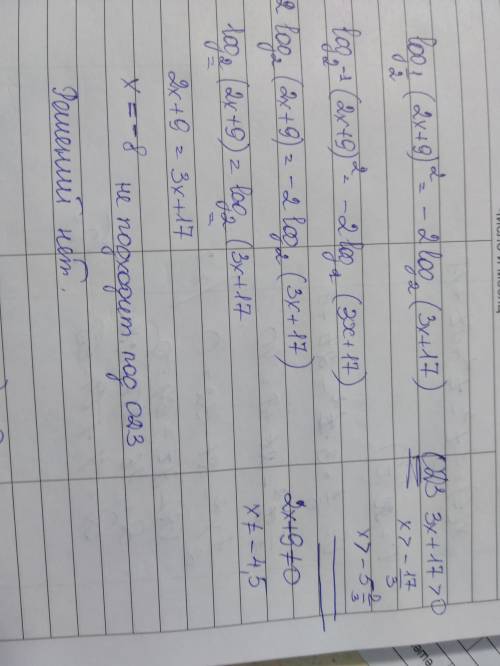 log_{1/2} (2x+9)^2 = -2 log_2 (3x+17)
log_{2^{-1}} (2x+9)^2 = -2 log_2 (3x+17)
2 log_2 (2x+9) = -2 log_2 (3x+17)
log_2 (2x+9) = log_2 (3x+17
2x+9 = 3x+17
x = -8 не подходит под ОДЗ
Решений нет.
ОДЗ 3x+17>0
x > -17/3
x > -5 2/3
2x+9≠0
x≠ -4,5